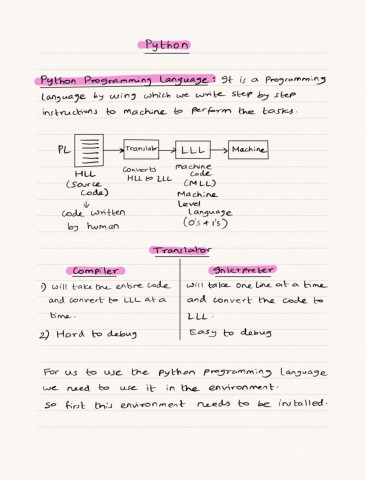 Python
Python Programming Language: It is a programming
language by using which we write step by step
instructions to machine to perform the tasks.
PL → Translator → LLL → Machine
HLL
(Source
Code)
↓
code written
by human
converts
HLL to LLL
Machine
Code
(MLL)
Machine
Level
Language
(0's + 1's)
Translator
Compiler
1) will take the entire code
and convert to LLL at a
time.
2) Hard to debug
Interpreter
will take one line at a time
and convert the code to
LLL.
Easy to debug
For us to use the python programming language
we need to use it in the environment.
So first this environment needs to be installed.